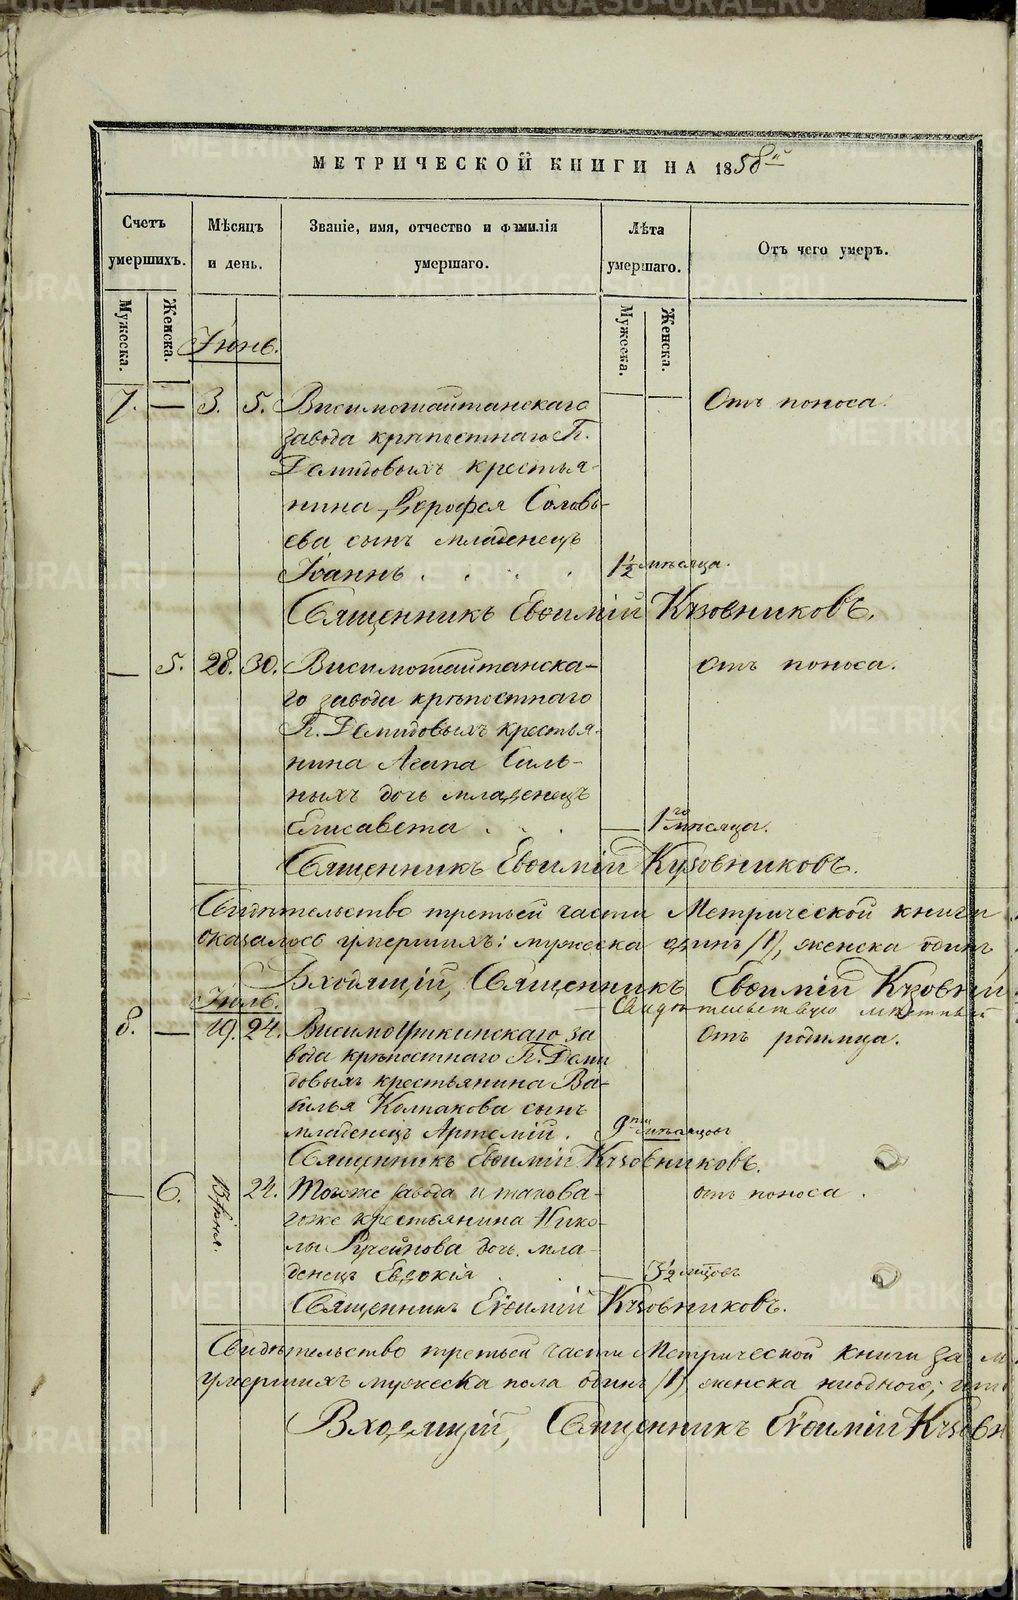 МЕТРИЧЕСКОЙ КНИГИ НА 1858й
Счетъ умершихъ.
Мѣсяцъ и день.
Званіе, имя, отчество и фамилія умершаго.
Лѣта умершаго.
Отъ чего умеръ.
Мужеска. Женска. Мужеска. Женска.
Іюнь.
7. — 3. 5. Висимошайтанскаго Отъ поноса.
завода крѣпостнаго П.
Демидовыхъ крестья-
нина Дорофея Соловь-
ева сынъ младенецъ
Іоаннъ . . . . 1½ мѣсяца.
Священникъ Евѳимій Кузовниковъ.
— 5. 28. 30. Висимошайтанска- отъ поноса.
го завода крѣпостнаго
П. Демидовыхъ крестья-
нина Агапа Силь-
ныхъ дочь младенецъ
Елисавета . . . — 1го мѣсяца.
Священникъ Евѳимій Кузовниковъ.
Свидѣтельство третьей части Метрической книги
оказалось умершихъ: мужеска одинъ /1/, женска одинъ
Входящій, Священникъ Евѳимій Кузовни
Свидѣтельствую
Іюль.
8. — 19. 24. Висимоуткинскаго за отъ родимца.
вода крѣпостнаго П. Деми
довыхъ крестьянина Ва-
силья Колпакова сынъ
младенецъ Артемій. 9ти мѣсяцовъ
Священникъ Евѳимій Кузовниковъ.
— 6. 24. Тогоже завода и такова- отъ поноса.
гоже крестьянина Нико-
лы Ручейнова дочь мла-
денецъ Евдокія . . — 3½ мѣсцовъ
Священникъ Евѳимій Кузовниковъ.
Свидѣтельство третьей части Метрической книги за м
умершихъ мужеска пола одинъ /1/, женска ниодного;
Входящій, Священникъ Евѳимій Кузовн
METRIKI.GASO-URAL.RU